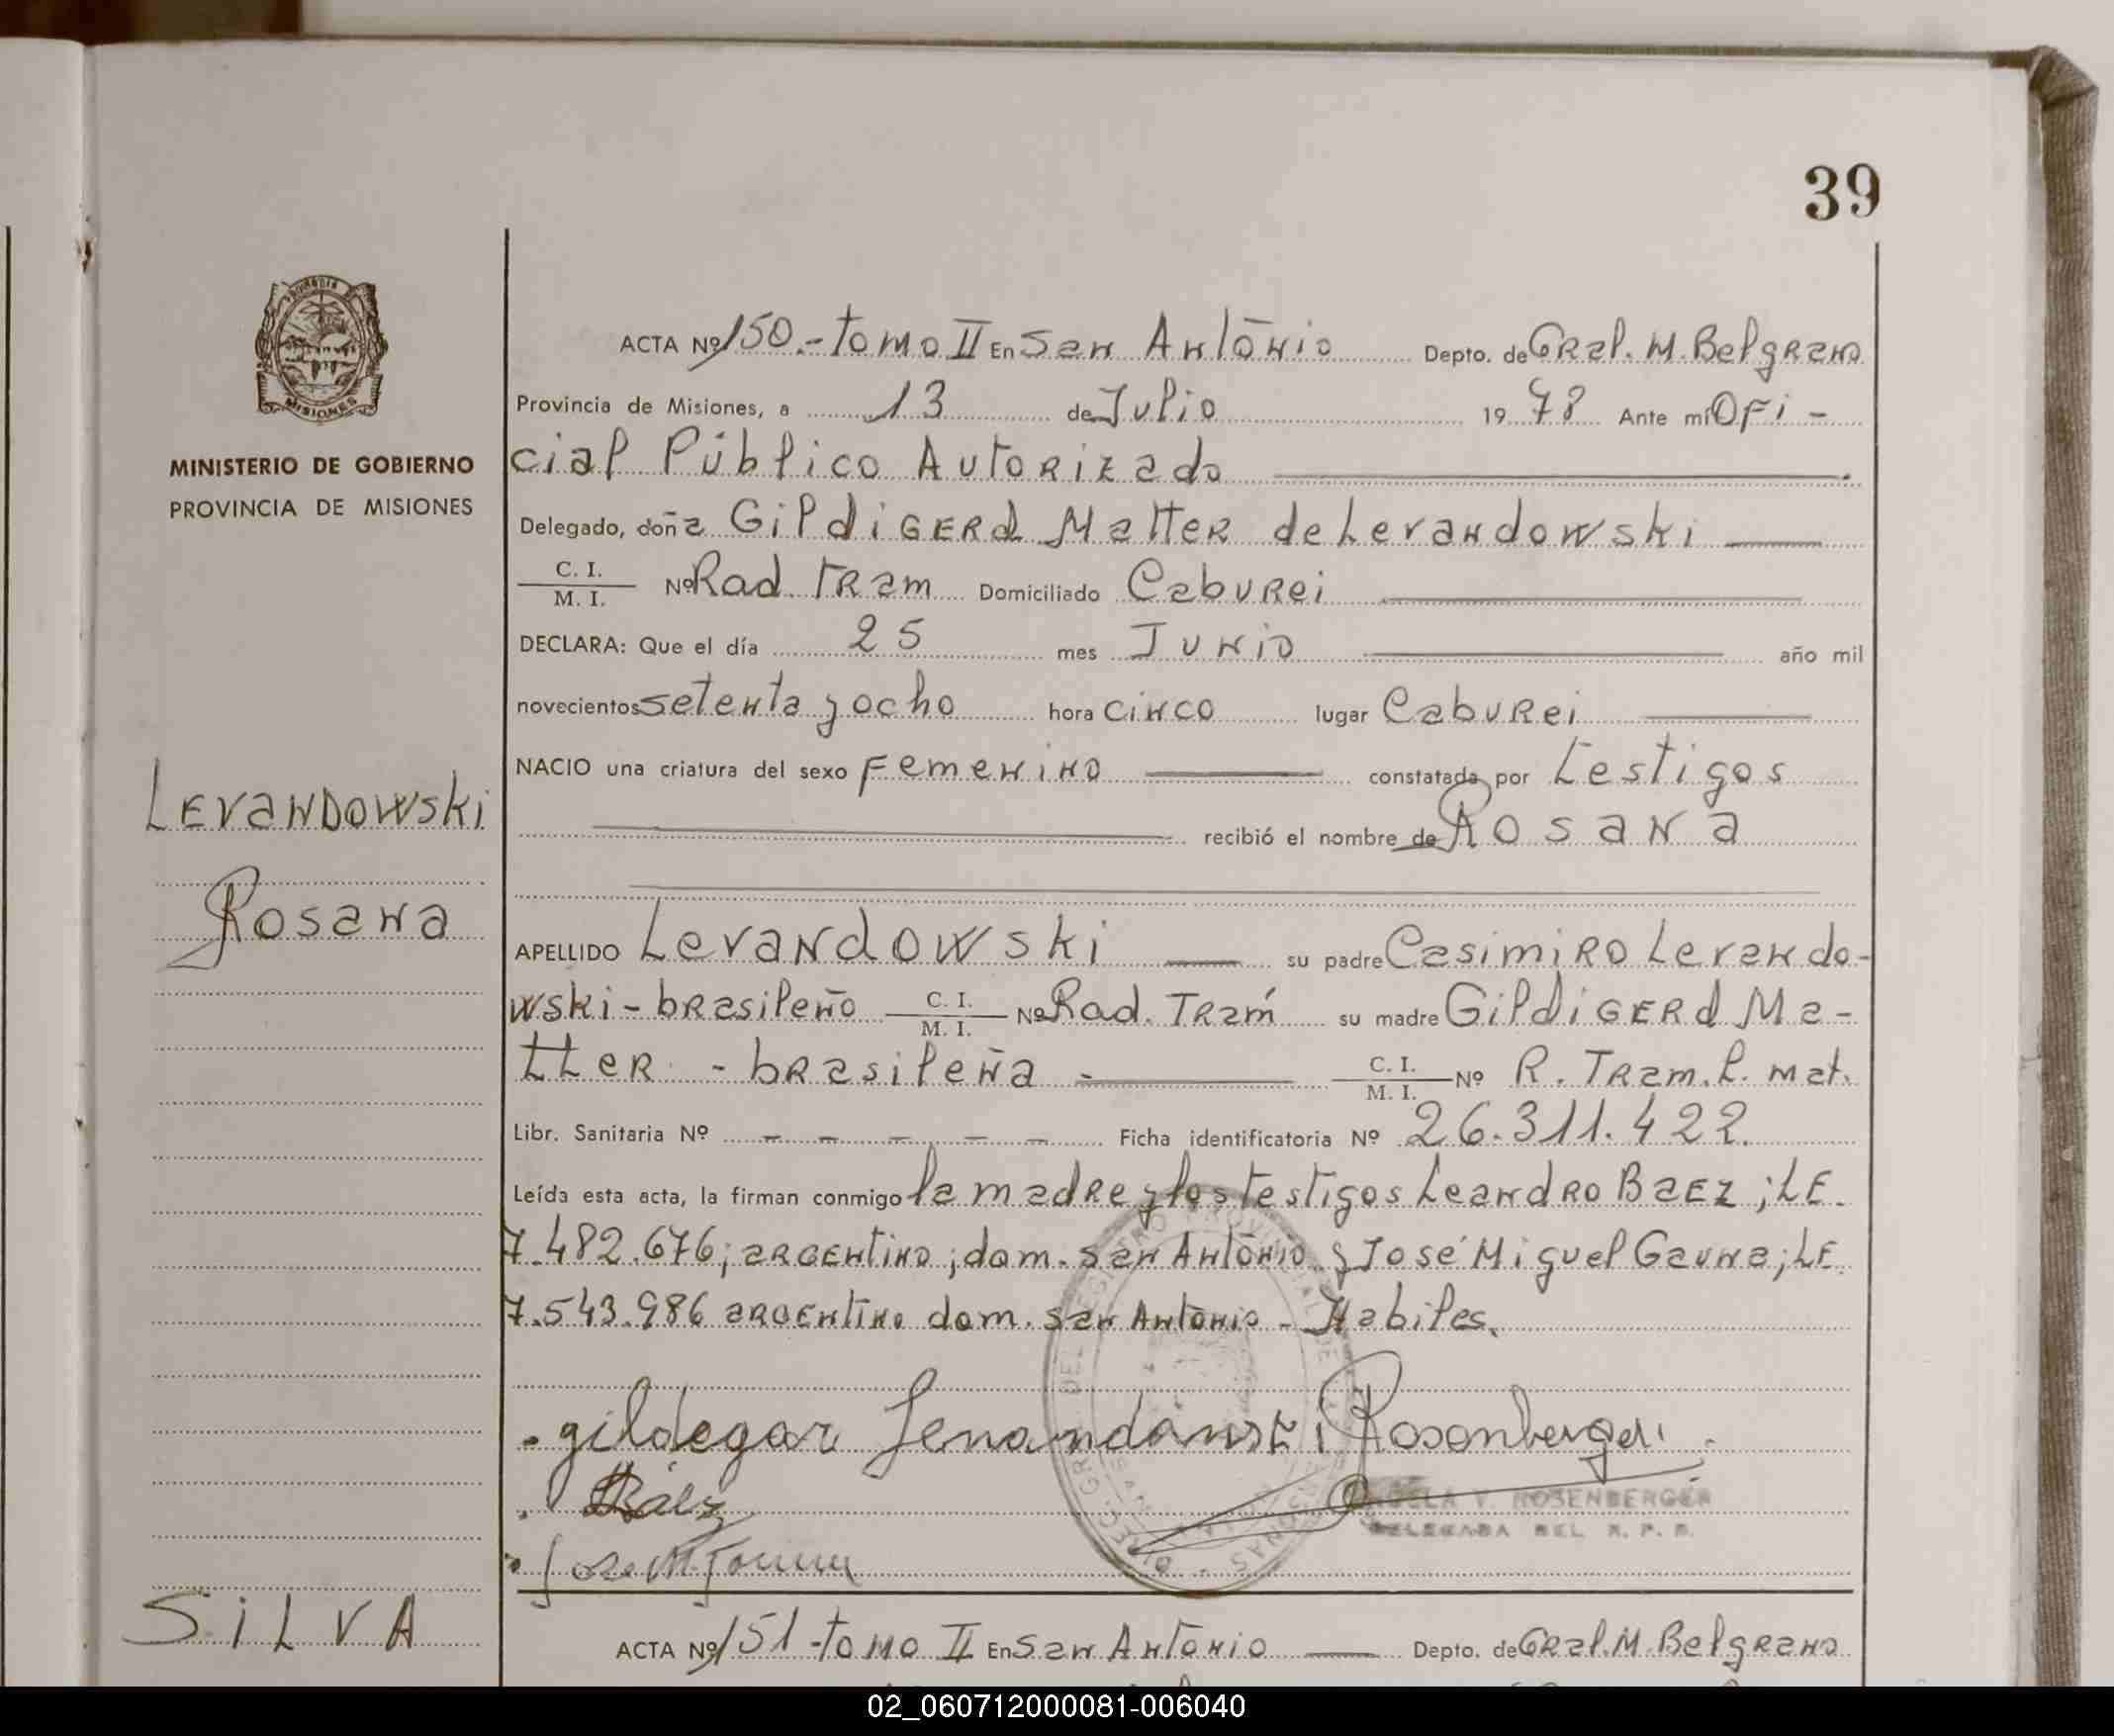 39
MISIONES
MINISTERIO DE GOBIERNO
PROVINCIA DE MISIONES
ACTA Nº 150.- tomo II En San António Depto. de Gral. M. Belgrano
Provincia de Misiones, a 13 de Julio 1978 Ante mí Ofi-
cial Público Autorizado
Delegado, doña Gildigerd Matter de Levandowski
C. I.
M. I. Nº Rad. Tram Domiciliado Caburei
DECLARA: Que el día 25 mes Junio año mil
novecientos setenta y ocho hora cinco lugar Caburei
NACIO una criatura del sexo Femenino constatada por testigos
recibió el nombre de Rosana
Levandowski
Rosana
APELLIDO Levandowski su padre Casimiro Levando-
wski - brasileño C. I. M. I. Nº Rad. Trám su madre Gildigerd Ma-
tter - brasileña - C. I. M. I. Nº R. Tram. L. mat.
Libr. Sanitaria Nº - - - - - Ficha identificatoria Nº 26.311.422.
Leída esta acta, la firman conmigo la madre y los testigos Leandro Baez ; LE.
7.482.676; argentino; dom. San António y José Miguel Gauna; LE.
7.543.986 argentino dom. San António - Habiles.
gildegar Rosenberger
Báez
Jose M.
ROSENBERGER
DELEGADA DEL R. P. P.
SILVA
ACTA Nº 151 - tomo II En San António Depto. de Gral. M. Belgrano
02_060712000081-006040